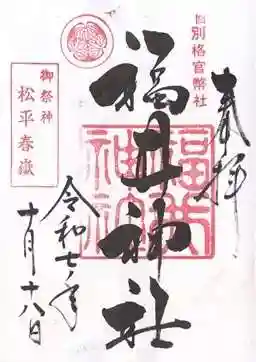 奉拝
旧別格官幣社
福井神社
福井神社
御祭神
松平春嶽
令和七年
十月十八日